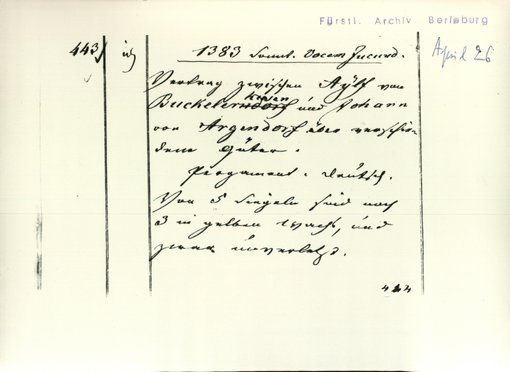 Fürstl. Archiv Berleburg
April 26
443
1383 Sonnt. Vocem Jucund.
Vertrag zwischen Aylf von
Buckelerkusen und Johann
von Argendorf über verschie-
dene Güter.
Pergament. Deutsch.
Von 5 Siegeln sind noch
3 in gelbem Wachs, und
zwar unverletzt.